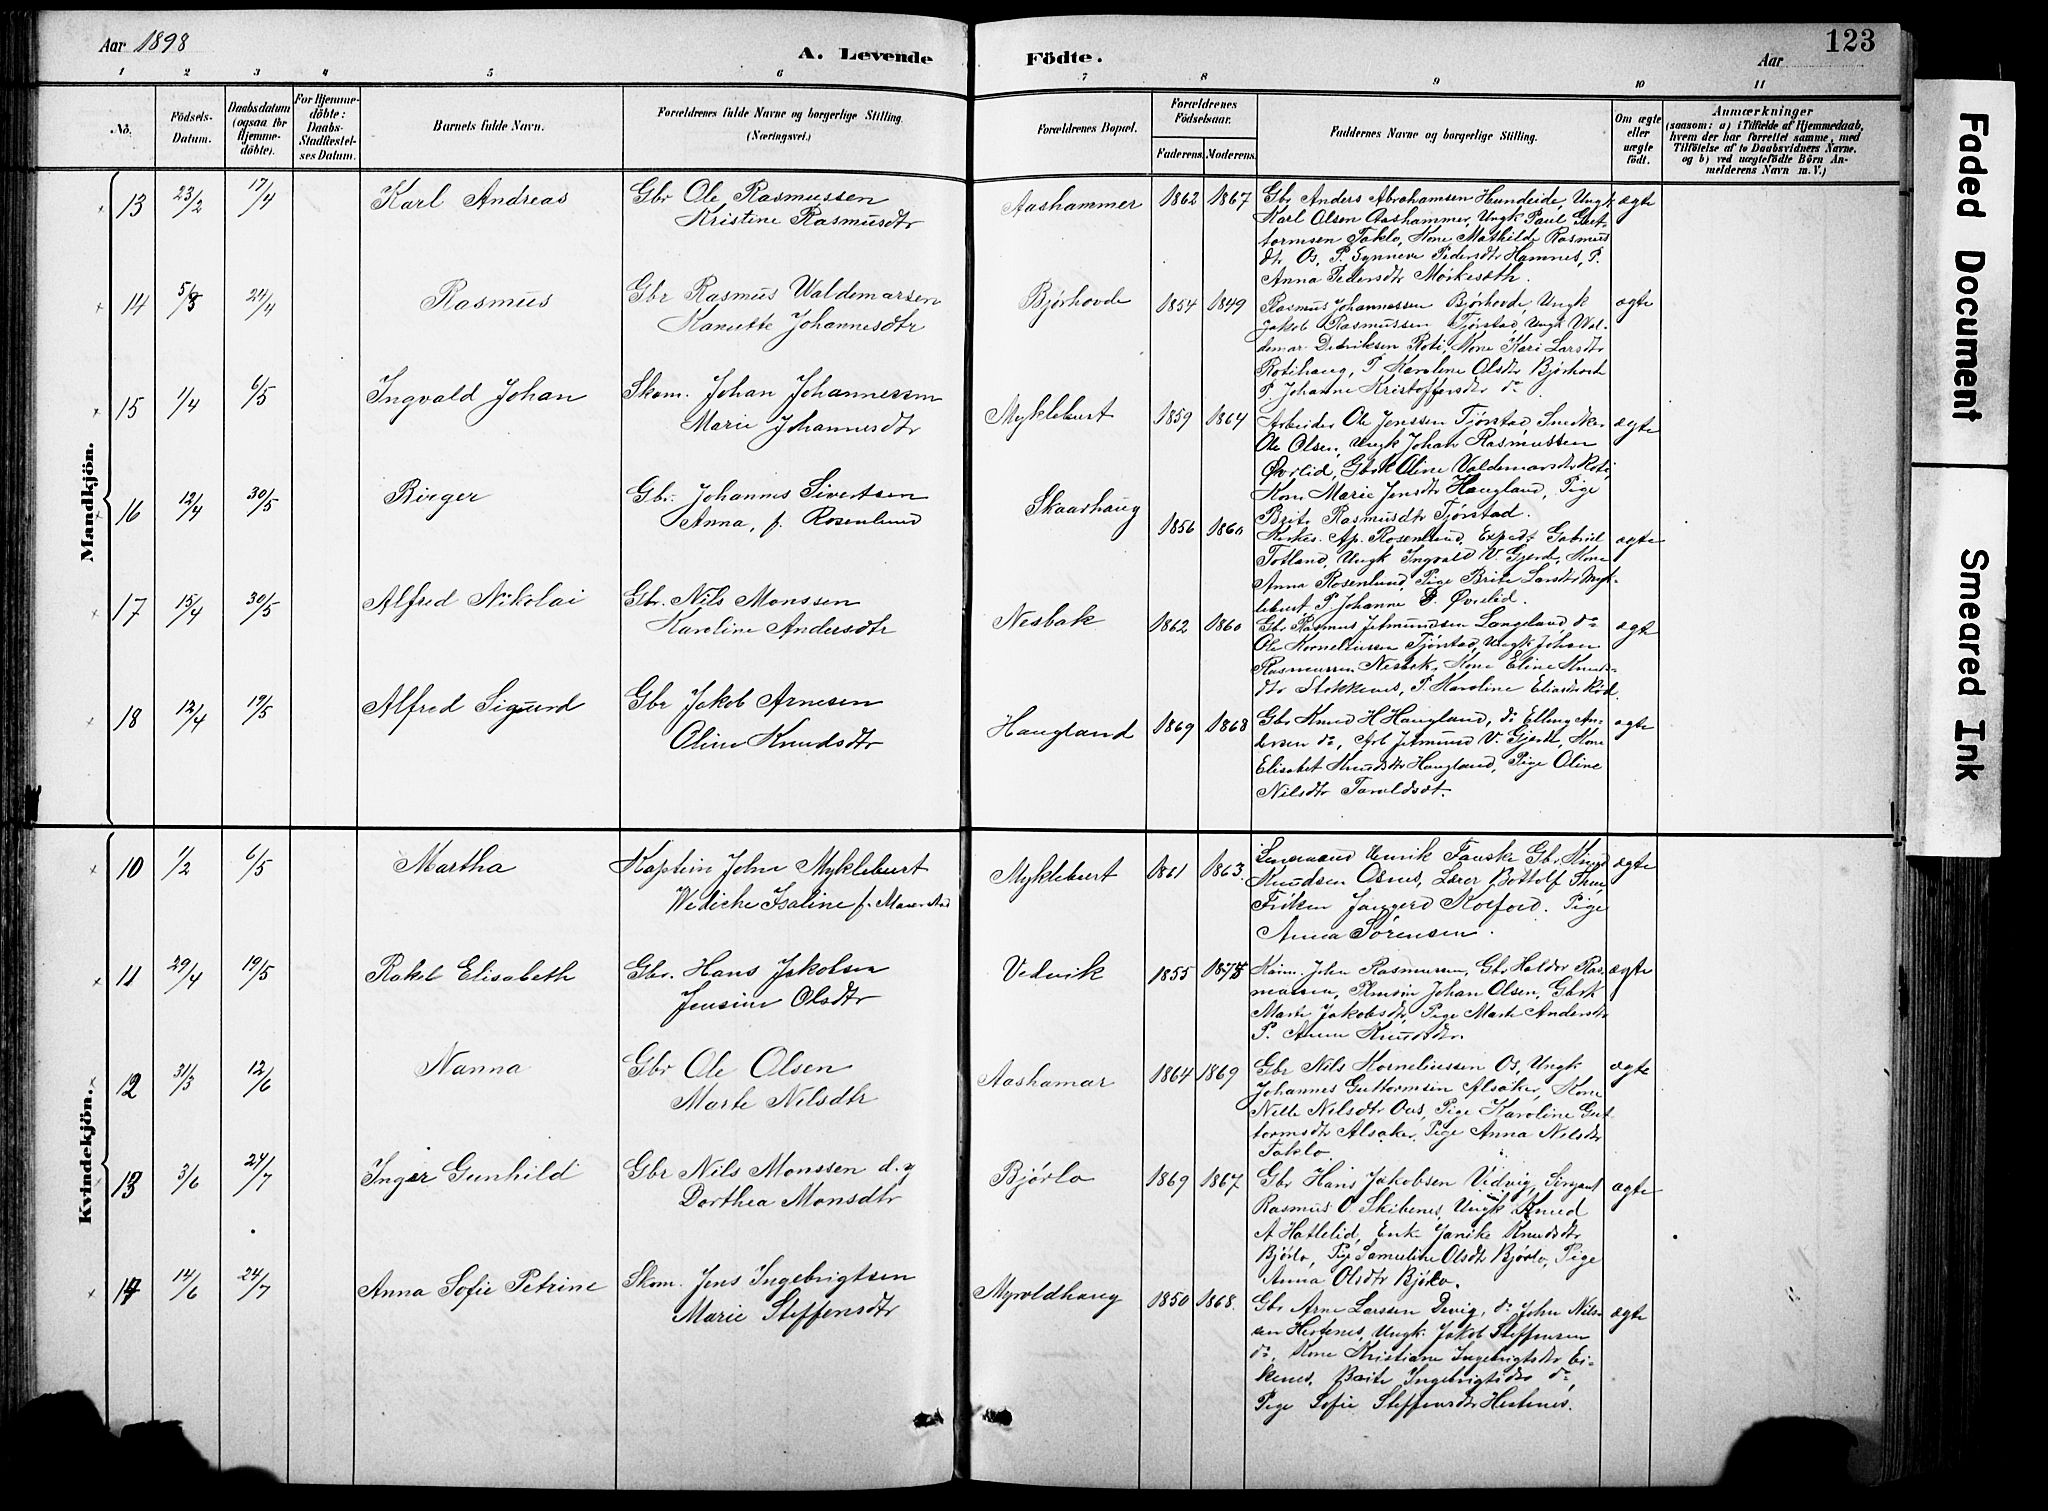 Aar 1898
A. Levende Födte.
Aar
123
1 2 3 4 5 6 7 8 9 10 11
No.
Födsels-
Datum.
Daabsdatum
(ogsaa for
Hjemme-
döbte).
For Hjemme-
döbte:
Daabs-
Stadfæstel-
ses Datum.
Barnets fulde Navn.
Forældrenes fulde Navne og borgerlige Stilling.
(Næringsvei.)
Forældrenes Bopæl.
Forældrenes
Födselsaar.
Faderens. Moderens.
Faddernes Navne og borgerlige Stilling.
Om ægte
eller
uægte
födt.
Anmærkninger
(saasom: a) i Tilfælde af Hjemmedaab,
hvem der har forrettet samme, med
Tilföielse af to Daabsvidners Navne.
og b) ved uægtefödte Börn An-
melderens Navn m. V.)
Mandkjön.
13 23/2 17/4 Karl Andreas Gbr Ole Rasmussen
Kristine Rasmusdtr
Aashammer 1862 1867
Gbr Anders Abrahamsen Hundeide, Ungk
Karl Olsen Aashammer, Ungk Paul Gut-
tormsen Taklo, Kone Mathilde Rasmus
dtr Os, P. Synneve Pedersdtr Hamnes, P.
Anna Pedersdtr Mørkesæth.
ægte
14 5/3 24/4 Rasmus Gbr Rasmus Waldemarsen
Kanutte Johannesdtr
Bjørhovde 1854 1849
Rasmus Johannessen Bjørhovde, Ungk
Jakob Rasmussen Tjørstad, Ungk Wal-
demar Dedriksen Roti, Kone Kari Larsdtr
Rotihaug, P Karoline Olsdtr Bjørhovd
P. Johanne Kristoffersdtr do
ægte
15 1/4 6/5 Ingvald Johan Skom. Johan Johannessen
Marie Johannesdtr
Myklebust 1859 1864
Arbeider Ole Jenssen Tjørstad, Snedker
Ole Olsen, Ungk Johan Rasmussen
Øvrlid, Gbrk Oline Valdemarsdtr Roti,
Kone Marie Jensdtr Haugland, Pige
Brite Rasmusdtr Tjørstad.
ægte
16 12/4 30/5 Birger Gbr. Johannes Sivertsen
Anna, f. Rosenlund
Skaarhaug 1856 1860
Kirkes. Ap. Rosenlund, Exped. Gabriel
Totland, Ungk Ingvald V. Gjerde, Kone
Anna Rosenlund, Pige Brite Larsdtr Myk-
lebust, P. Johanne Øvrelid.
ægte
17 15/4 30/5 Alfred Nikolai Gbr. Nils Monssen
Karoline Andersdtr
Nesbak 1862 1860
Gbr. Rasmus Jetmundsen Langeland do
Ole Korneliussen Tjørstad, Ungk Johan
Rasmussen Nesbak, Kone Eline Knuds-
dtr Stokkenes, P. Karoline Eliasdtr Rød.
ægte
18 12/4 19/5 Alfred Sigurd Gbr Jakob Arnesen
Oline Knudsdtr
Haugland 1869 1868
Gbr Knud H Haugland, do Elling An-
dersen do, Arb Jetmund V. Gjerde, Kone
Elisabet Knudsdtr Haugland, Pige Oline
Nilsdtr Taraldset.
ægte
Kvindekjön.
10 1/2 6/5 Martha Kaptein John Myklebust
Wediche Isaline f.
Myklebust 1861 1863.
Lensmand Henrik Fauske Gbr. Knud
Knudsen Osnes, Lærer Bottolf
Frøken Koefoed. Pige
Anna Sørensen.
ægte
11 29/4 19/5 Rakel Elisabeth Gbr. Hans Jakobsen
Jensine Olsdtr
Vedvik 1855 1875
John Rasmussen, Gbr Haldor Ras-
mussen, Johan Olsen, Gbrk
Marte Jakobsdtr, Pige Marte Andersdtr
P. Anne Knudsdtr.
ægte
12 31/3 12/6 Nanna Gbr Ole Olsen
Marte Nilsdtr
Aashamar 1864 1869
Gbr Nils Korneliussen Os, Ungk
Johannes Guttormsen Alsaker, Kone
Nille Nilsdtr Oos, Pige Karoline Gut-
tormsdtr Alsaker, Pige Anna Nilsdtr
Taklo
ægte
13 3/6 24/7 Inger Gunhild Gbr Nils Monssen d. y
Dorthea Monsdtr
Bjørlo 1869 1867
Gbr Hans Jakobsen Vedvig, Sergeant
Rasmus O. Skibenes, Ungk Knud
A Hatlelid, Enke Janike Knudsdtr
Bjørlo, Pige Samueline Olsdtr Bjørlo, Pige
Anna Olsdtr Bjørlo.
ægte
14 14/6 24/7 Anna Sofie Petrine Skom. Jens Ingebrigtsen
Marie Steffensdtr
Myroldhaug 1850 1868.
Gbr Arne Larssen Devig, do John Nils-
sen Hestenes, Ungk. Jakob Steffensen
do, Kone Kristiane Ingebrigtsdtr Ei-
kenes, Brite Ingebrigtsdtr do,
Pige Sofie Steffensdtr Hestenes.
ægte
Faded Document
Smeared Ink